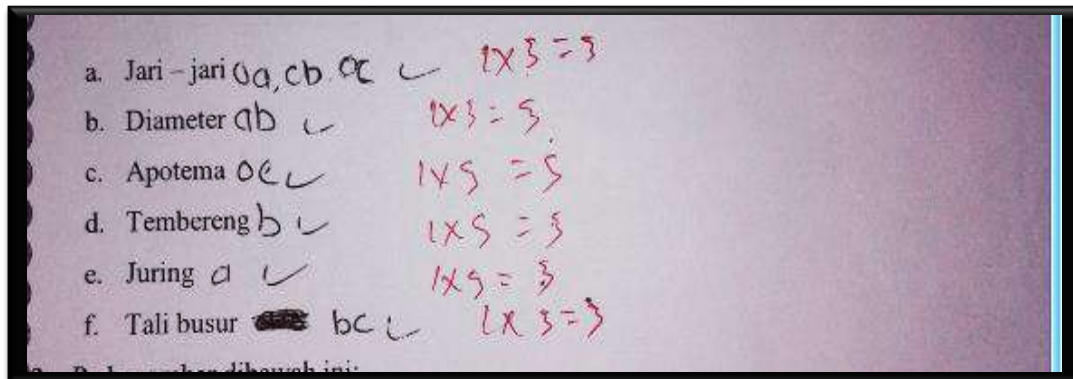 a. Jari – jari oa, cb oc ✓ 1x3=3
b. Diameter ab ✓ 1x3=3
c. Apotema oe ✓ 1x3=3
d. Tembereng b ✓ 1x3=3
e. Juring a ✓ 1x3=3
f. Tali busur bc ✓ 1x3=3
dibawah ini: